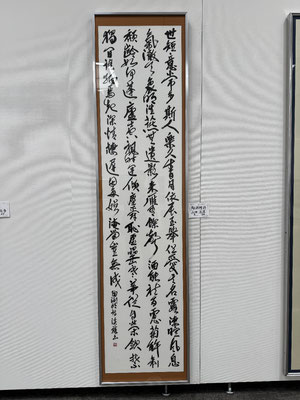 世短意常多斯人樂久生日月依辰至舉俗愛其名露淒暄風息
氣澈天象明往燕無遺影來雁有餘聲酒能祛百慮菊解制
頹齡如何蓬廬士空視時運傾塵爵恥虛罍寒華徒自榮斂襟
獨閒謠緬焉起深情棲遲固多娛淹留豈無成